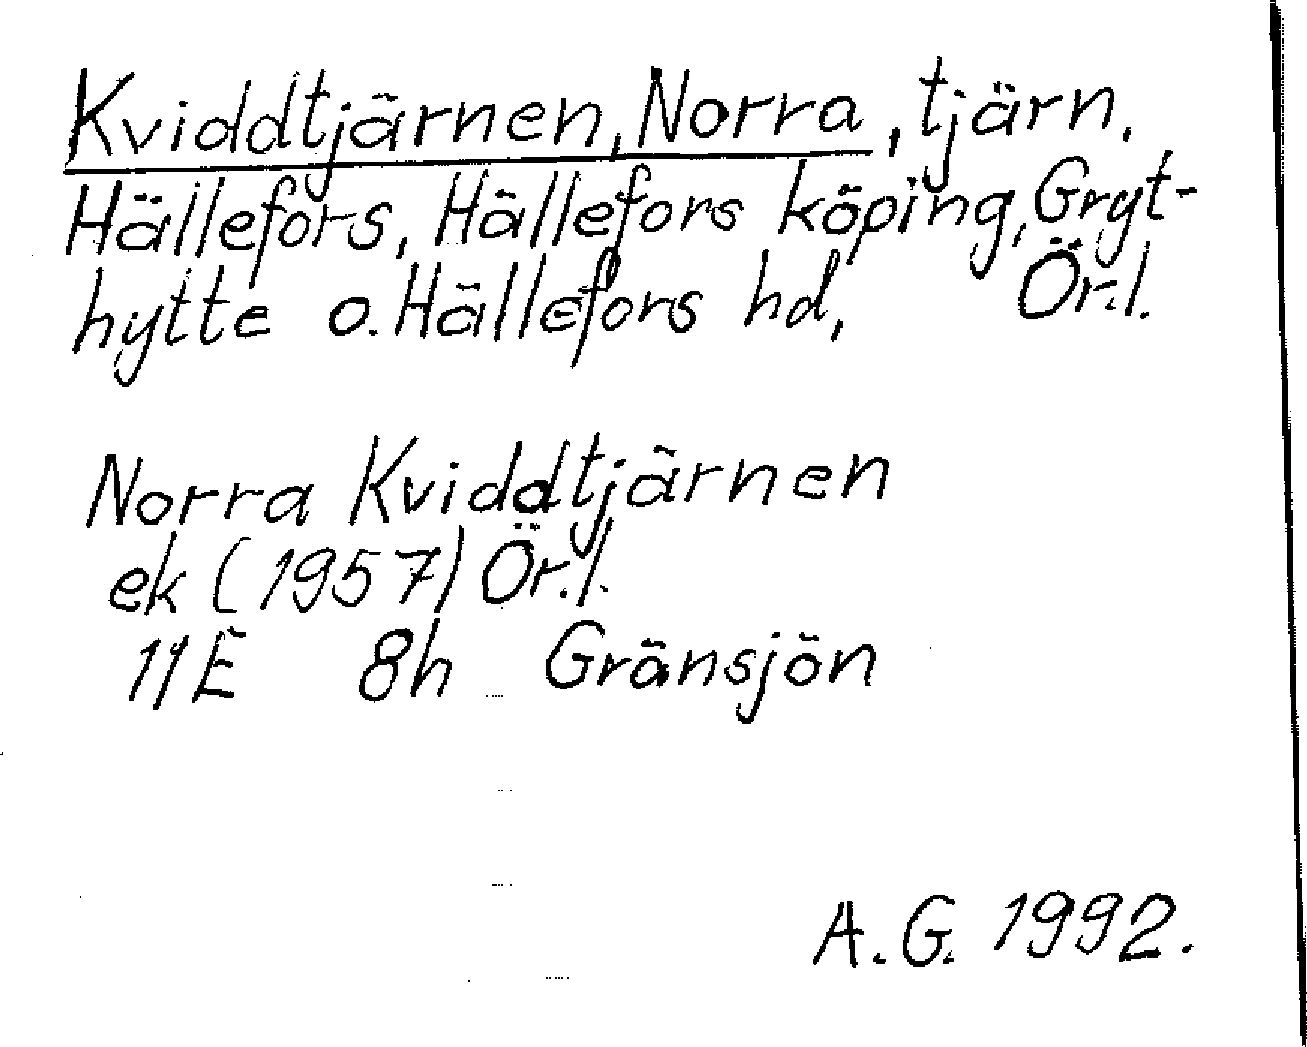 Kviddtjärnen, Norra, tjärn.
Hällefors, Hällefors köping, Gryt-
hytte o. Hällefors hd, Ör.l.
Norra Kviddtjärnen
ek (1957) Ör.l.
11E 8h Gränsjön
A.G. 1992.